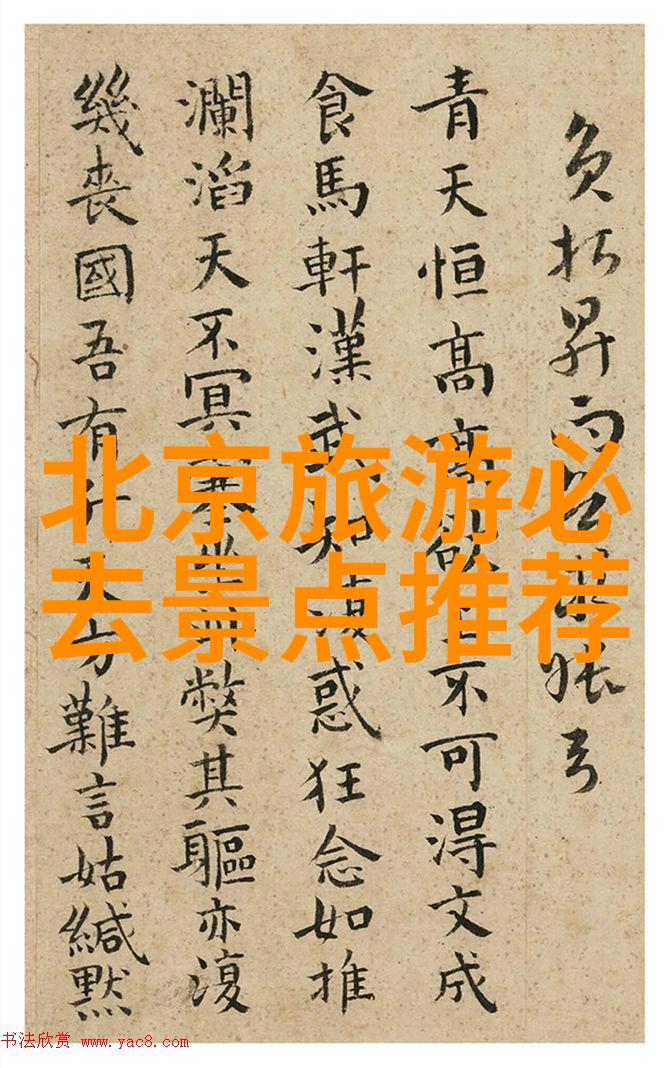 北京旅游必
去景点推荐
負昇
青天恒高高欲上不可得文成
食馬軒漢武知復惑狂念如推
瀾滔天不冥弊其軀亦復
幾喪國吾有天方難言姑緘默
书法欣赏 www.yac8.com